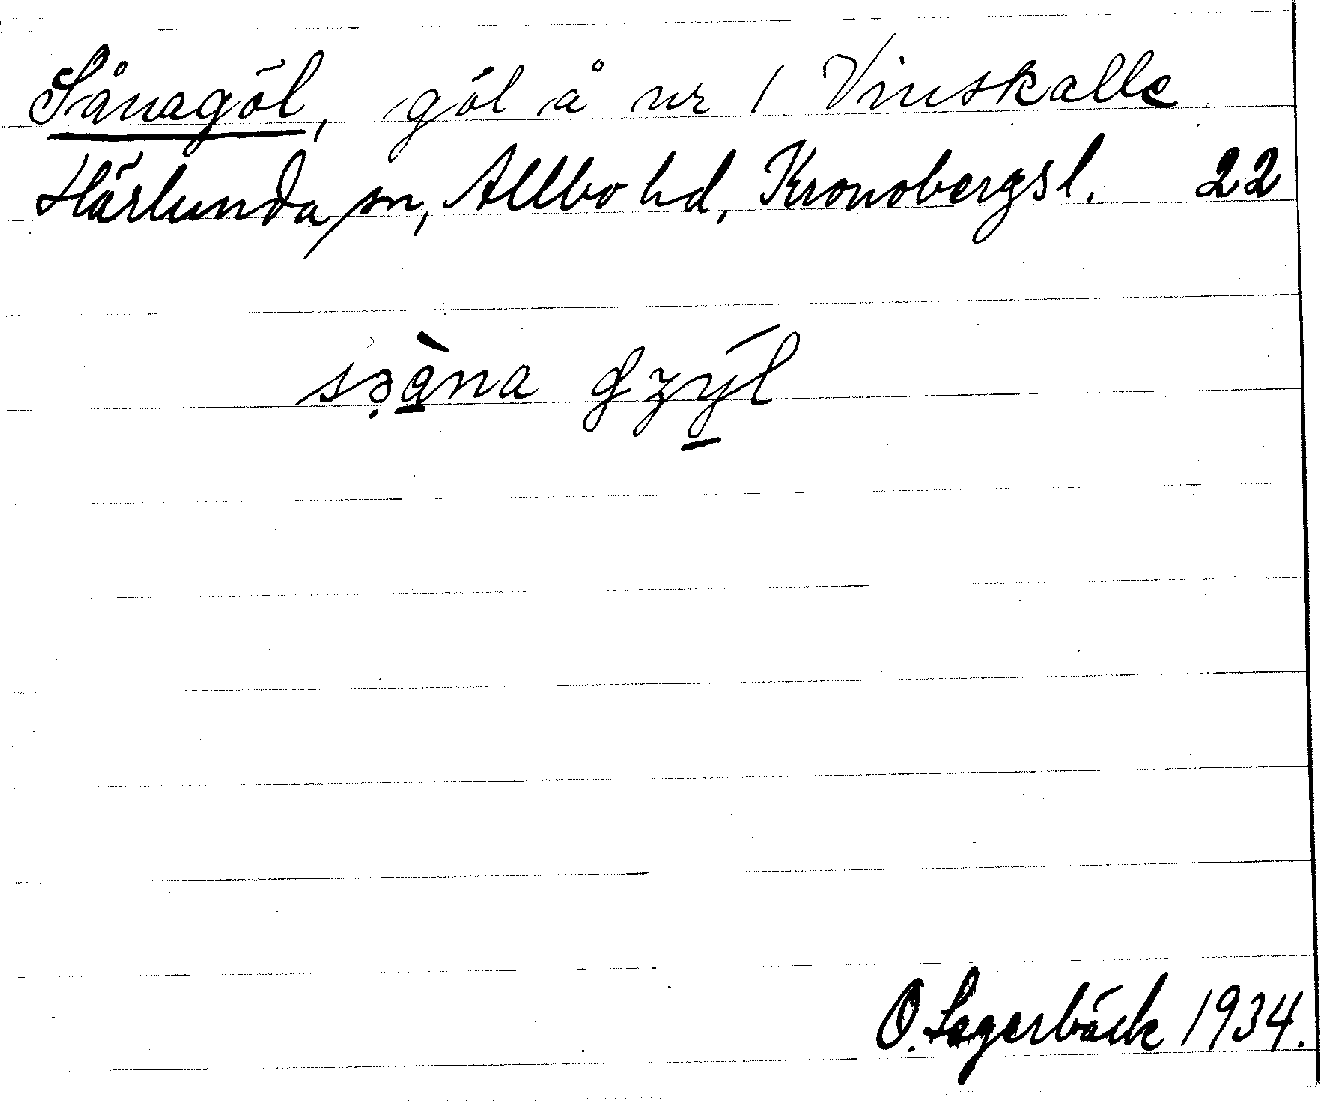 Sånagöl, göl å nr 1 Vinskalle
Härlunda sn, Allbo hd, Kronobergs l. 22
sə̣à̱na gzý̱l
O. Lagerbäck 1934.